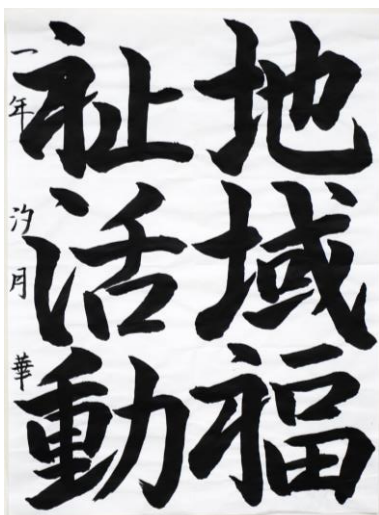 地域福
祉活動
一年 汐月 華